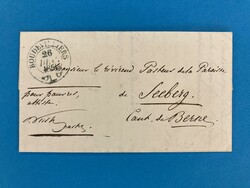 BOUDEVILLIERS
26
Monsieur le Révérend Pasteur de la Paroisse
de Seeberg.
Cant. de Berne
pour pauvres,
atteste